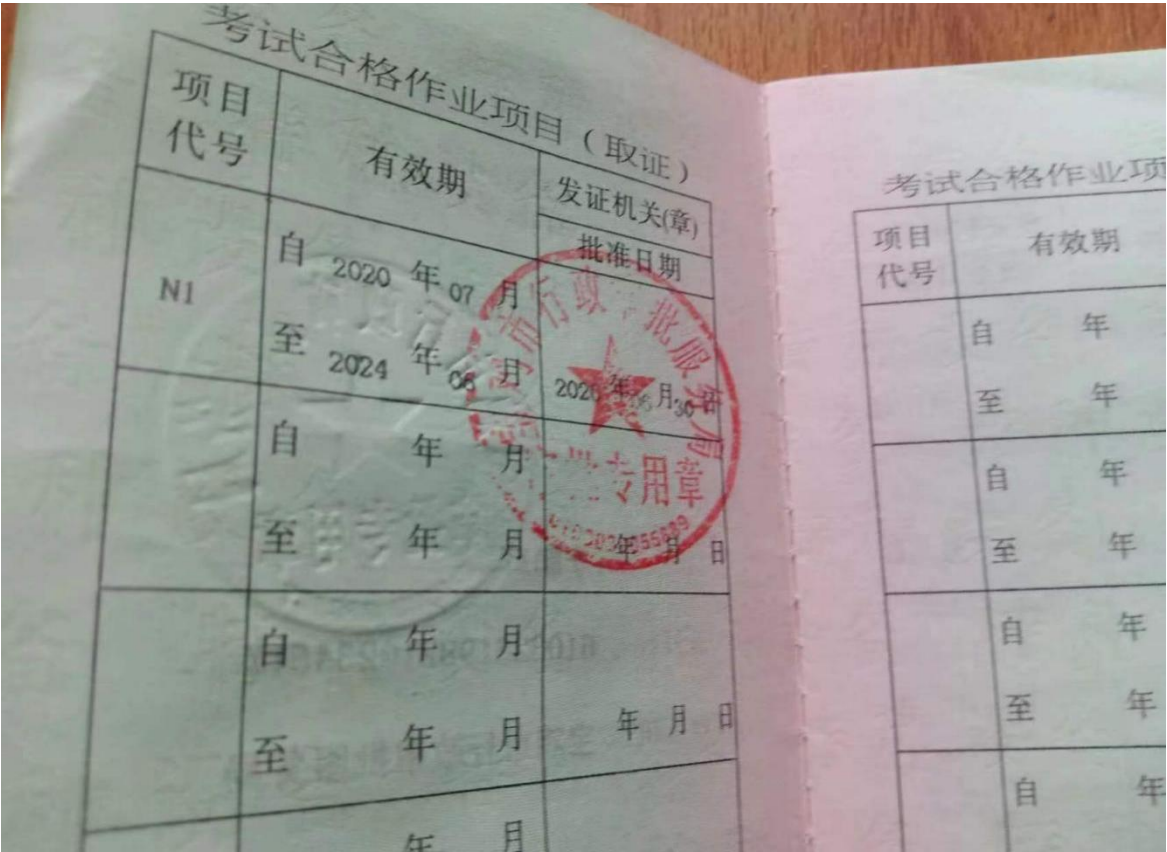 考试合格作业项目（取证）
项目
代号
有效期
发证机关(章)
批准日期
N1
自 2020 年 07 月
至 2024 年 06 月
2020 年 06 月 30 日
市行政 批服务局
专用章
自 年 月
至 年 月
年 月 日
自 年 月
至 年 月
年 月 日
年 月
考试合格作业项
项目
代号
有效期
自 年
至 年
自 年
至 年
自 年
至 年
自 年